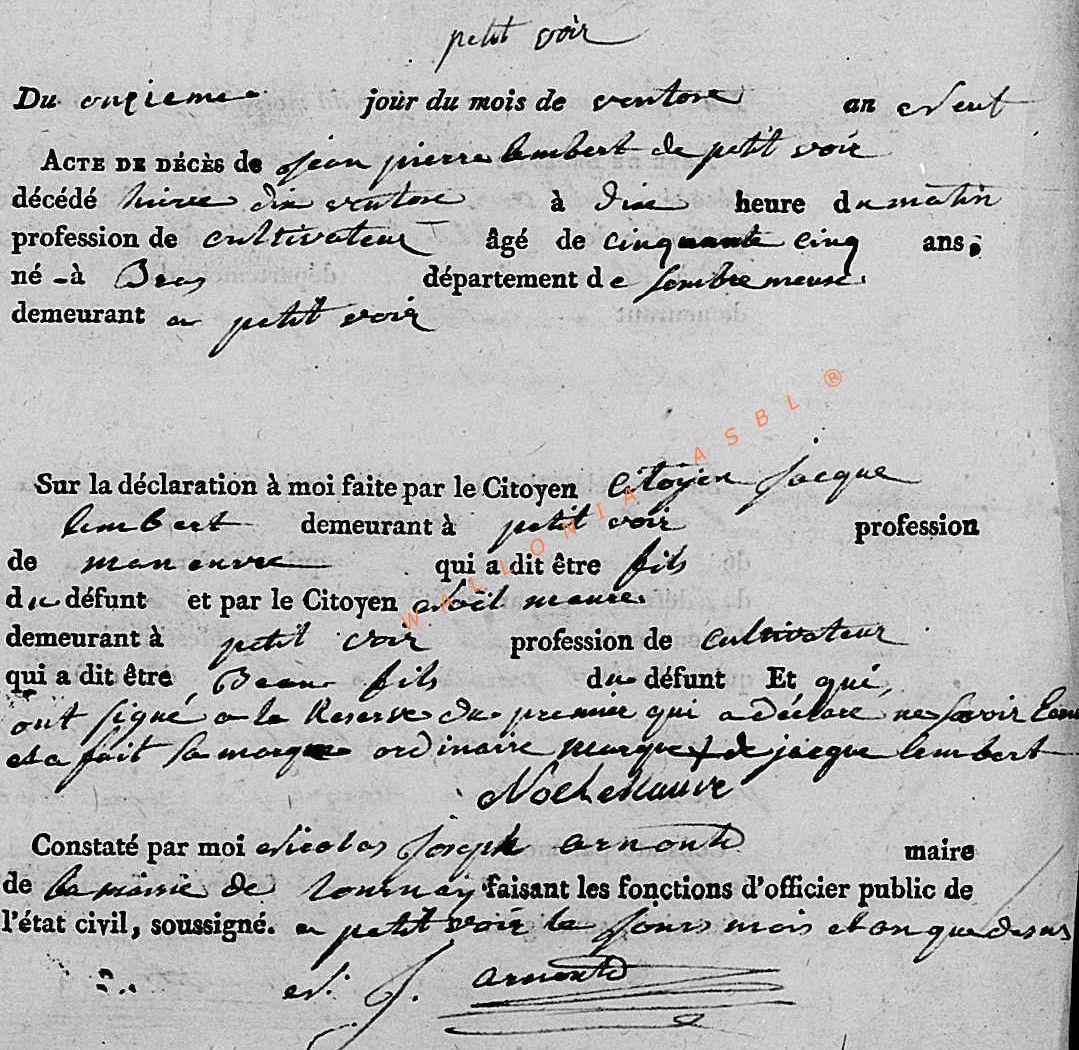 petit voir
Du onzieme jour du mois de ventose an neuf
ACTE DE DÉCÈS de jean pierre lembert de petit voir
décédé hiere dix ventose à dix heure du matin
profession de cultivateur âgé de cinquante cinq ans,
né -à Bras département de sombre meuse
demeurant a petit voir
Sur la déclaration à moi faite par le Citoyen Citoyen Jacque
lembert demeurant à petit voir profession
de manouvre qui a dit être fils
du défunt et par le Citoyen Noël
demeurant à petit voir profession de cultivateur
qui a dit être Beau fils du défunt Et qui,
ont signé a la Reserve du premier qui a déclaré ne savoir
et a fait sa marque ordinaire marque + de jacque lembert
Noel
Constaté par moi Nicolas Joseph arnould maire
de la mairie de tournay faisant les fonctions d'officier public de
l'état civil, soussigné. a petit voir les jours mois et an que desus
N. J. arnould
WALLONIA ASBL ®